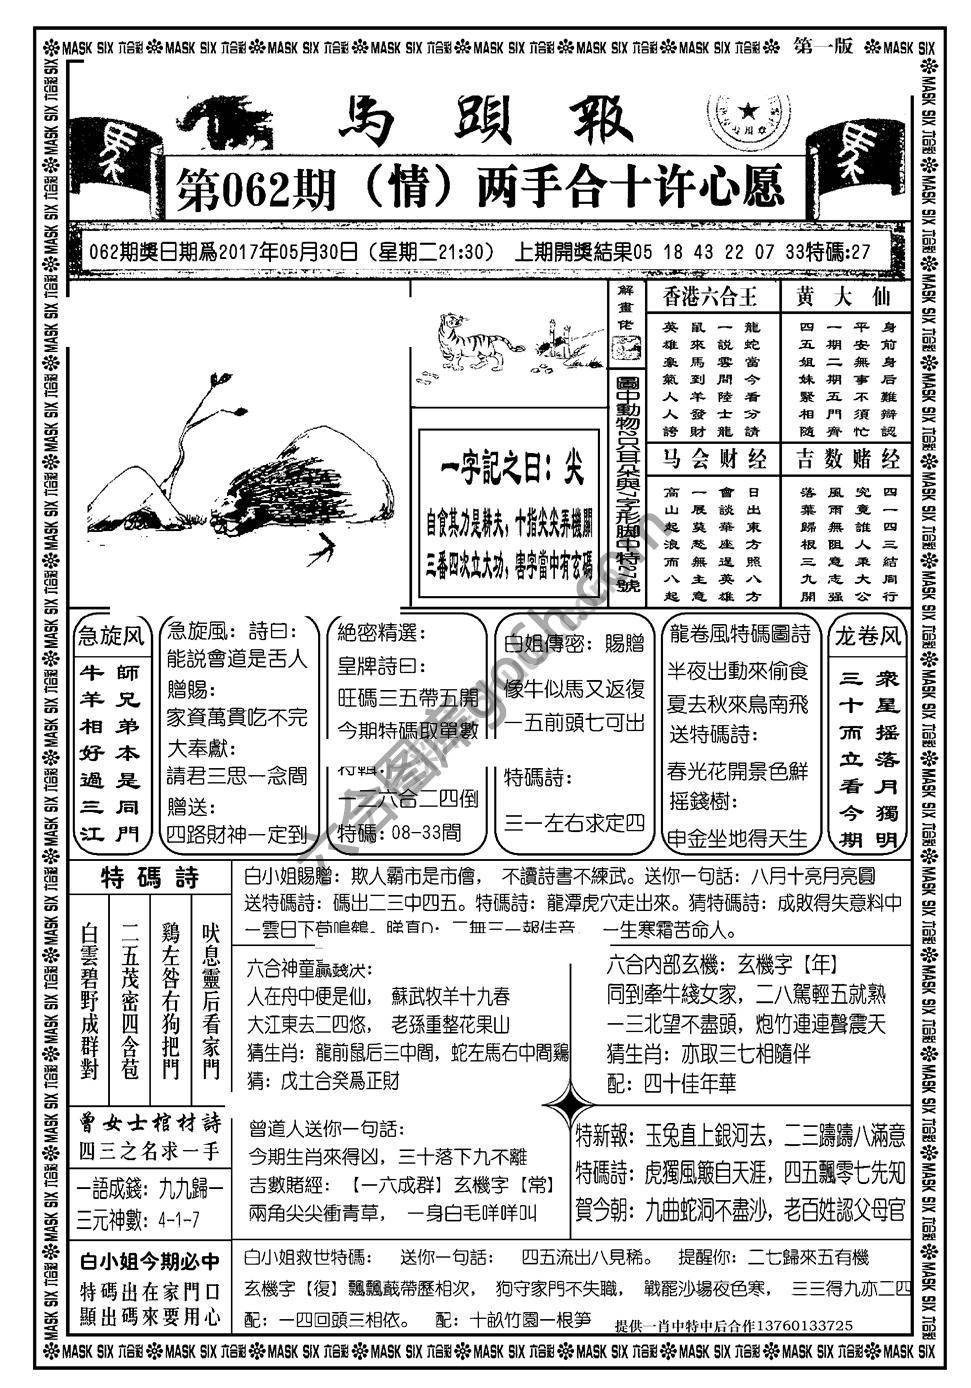 MASK SIX 六合彩 MASK SIX 六合彩 MASK SIX 六合彩 MASK SIX 六合彩 MASK SIX 六合彩 MASK SIX 六合彩 MASK SIX 六合彩 第一版 MASK SIX
馬頭報
第062期（情）两手合十许心愿
062期獎日期爲2017年05月30日（星期二21:30） 上期開獎結果05 18 43 22 07 33特碼:27
解畫佬
圖中動物2只耳朵與7字形脚中特27號
一字記之曰：尖
自食其力是耕夫，十指尖尖弄機關
三番四次立大功，害字當中有玄碼
香港六合王
英雄豪氣人人誇
鼠來馬到羊發財
一說雲問陸士龍
龍蛇當今看分請
黃大仙
四五姐妹緊相隨
一期二期五門齊
平安無事不須忙
身前身后難辯認
马会财经
高山起浪而八起
一展莫愁無主意
會談華座逞英雄
日出東方照八方
吉数赌经
落葉歸根三九開
風雨無阻意志强
究竟誰人秉大公
四一四三結同行
急旋风
師兄弟本是同門
牛羊相好過三江
急旋風：詩曰：
能說會道是舌人
贈賜：
家資萬貫吃不完
大奉獻：
請君三思一念間
贈送：
四路財神一定到
絶密精選：
皇牌詩曰：
旺碼三五帶五開
今期特碼取單數
特輯：
一二六合二四倒
特碼：08-33間
白姐傳密：賜贈
像牛似馬又返復
一五前頭七可出
特碼詩：
三一左右求定四
龍卷風特碼圖詩
半夜出動來偷食
夏去秋來鳥南飛
送特碼詩：
春光花開景色鮮
摇錢樹：
申金坐地得天生
龙卷风
衆星摇落月獨明
三十而立看今期
特碼詩
吠息靈后看家門
鷄左咎右狗把門
二五茂密四含苞
白雲碧野成群對
白小姐賜贈：欺人霸市是市儈， 不讀詩書不練武。送你一句話：八月十亮月亮圓
送特碼詩：碼出二三中四五。特碼詩：龍潭虎穴走出來。猜特碼詩：成敗得失意料中
一生寒霜苦命人。
六合神童贏錢决：
人在舟中便是仙， 蘇武牧羊十九春
大江東去二四悠， 老孫重整花果山
猜生肖：龍前鼠后三中間，蛇左馬右中間鷄
猜：戊土合癸爲正財
六合内部玄機：玄機字【年】
同到牽牛綫女家，二八駕輕五就熟
一三北望不盡頭，炮竹連連聲震天
猜生肖：亦取三七相隨伴
配：四十佳年華
曾女士棺材詩
四三之名求一手
一語成錢：九九歸一
三元神數：4-1-7
曾道人送你一句話：
今期生肖來得凶，三十落下九不離
吉數賭經：【一六成群】玄機字【常】
兩角尖尖衝青草， 一身白毛咩咩叫
特新報：玉兔直上銀河去，二三躊躊八滿意
特碼詩：虎獨風簸自天涯，四五飄零七先知
賀今朝：九曲蛇洞不盡沙，老百姓認父母官
白小姐今期必中
特碼出在家門口
顯出碼來要用心
白小姐救世特碼： 送你一句話： 四五流出八見稀。 提醒你：二七歸來五有機
玄機字【復】飄飄蕺帶歷相次， 狗守家門不失職， 戰罷沙場夜色寒， 三三得九亦二四
配：一四回頭三相依。 配：十畝竹園一根笋 提供一肖中特中后合作13760133725
六合图库go6h.com
MASK SIX 六合彩 MASK SIX 六合彩 MASK SIX 六合彩 MASK SIX 六合彩 MASK SIX 六合彩 MASK SIX 六合彩 MASK SIX 六合彩 MASK SIX 六合彩 MASK SIX